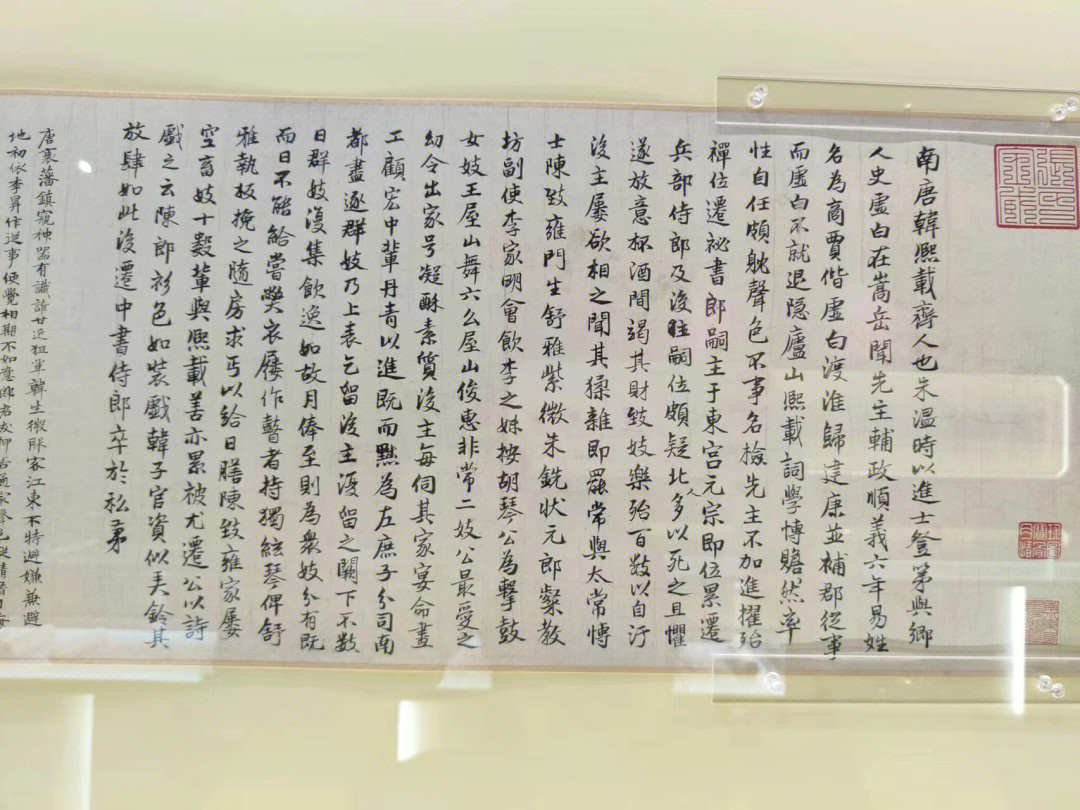 南唐韓熙載齊人也朱温時以進士登第與鄉
人史虛白在嵩岳聞先主輔政順義六年易姓
名為商賈偕虛白渡淮歸建康並補郡從事
而虛白不就退隐廬山熙載詞學博贍然率
性自任頗躭聲色不事名檢先主不加進擢殆
禪位遷祕書郎嗣主于東宫元宗即位累遷
兵部侍郎及後主嗣位頗疑北人多以死之且懼
遂放意杯酒間竭其財致妓樂殆百數以自汙
後主屢欲相之聞其猱雜即罷常與太常博
士陳致雍門生舒雅紫微朱銑状元郎粲教
坊副使李家明會飲李之妹按胡琴公為擊鼓
女妓王屋山舞六么屋山俊惠非常二妓公最爱之
幼令出家号凝酥素質後主每伺其家宴命畫
工顧宏中輩丹青以進既而黜為左庶子分司南
都盡逐群妓乃上表乞留後主復留之闕下不数
日群妓復集飲逸如故月俸至則為衆妓分有既
而日不能給嘗弊衣屨作瞽者持獨絃琴俾舒
雅執板挽之隨房求丐以給日膳陳致雍家屢
空畜妓十數輩與熙載善亦累被尤遷公以詩
戲之云陳郎衫色如装戲韓子官資似美鈴其
放肆如此後遷中書侍郎卒於私苐
唐衰藩鎮窺神器有識誰甘近狙輩韓生微服客江東不特避嫌兼避
地初依李昪作逆事便覺相期不如意郎君友狎若通家聲色